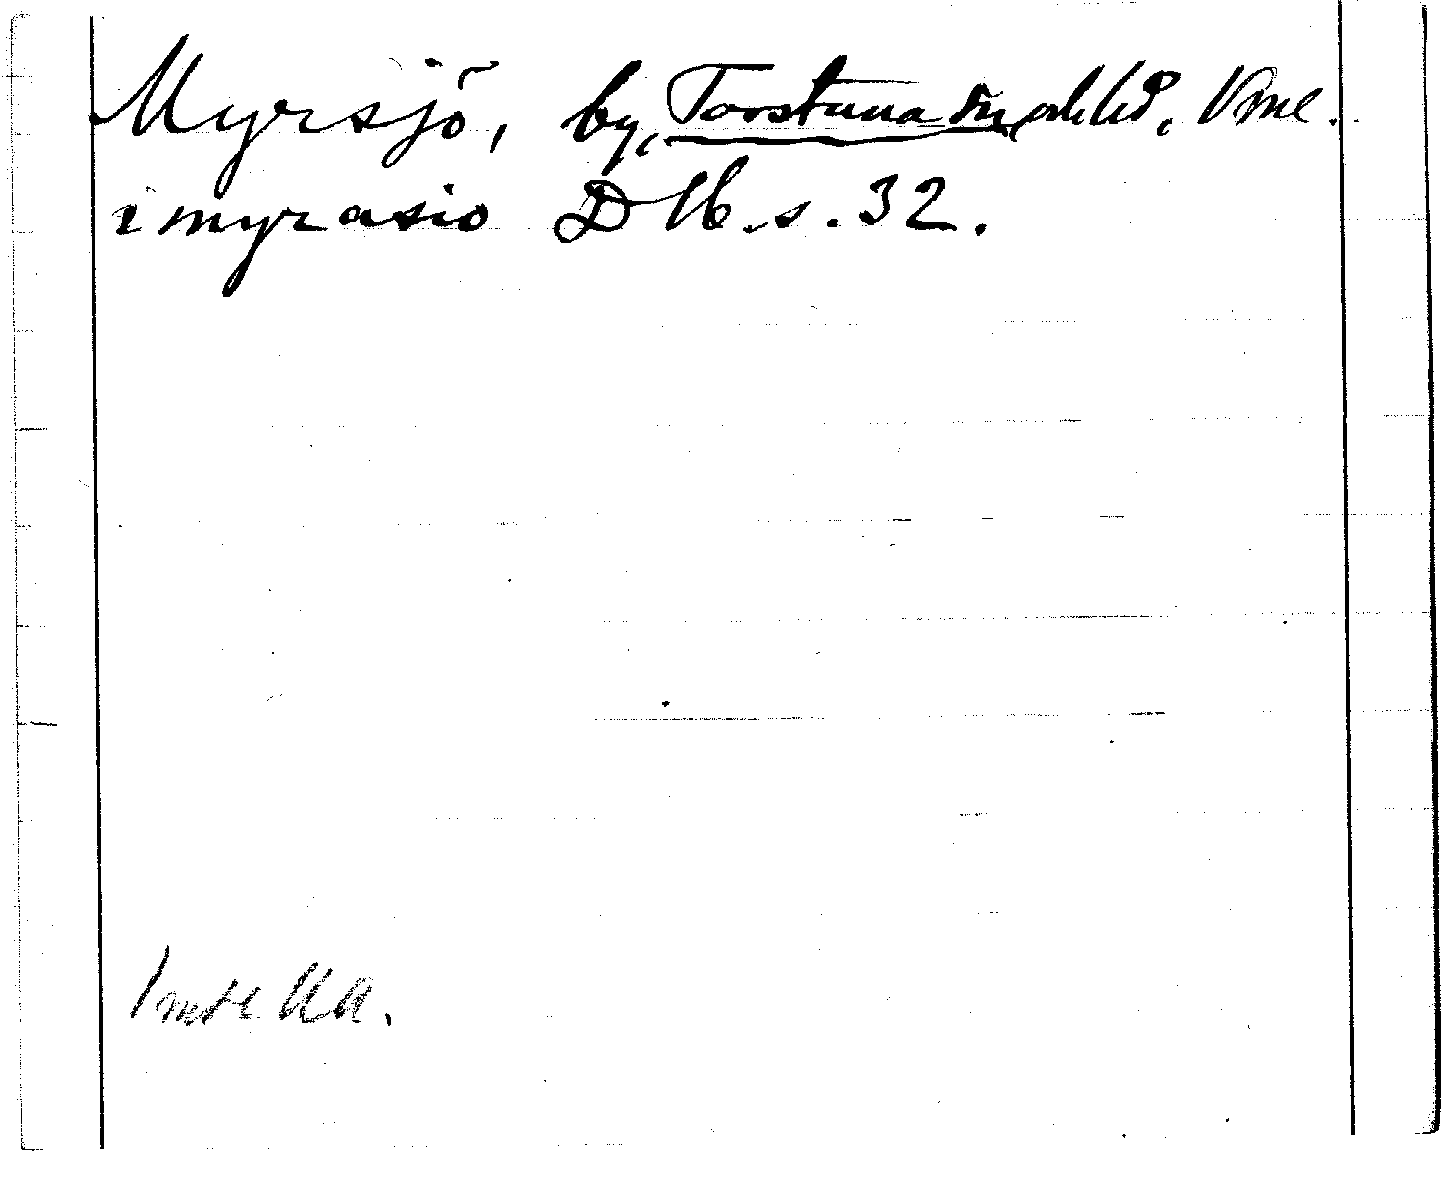 Myrsjö, by, Torstuna sn och hd, Vml.
i myrasio D 16. s. 32.
Inte UA.